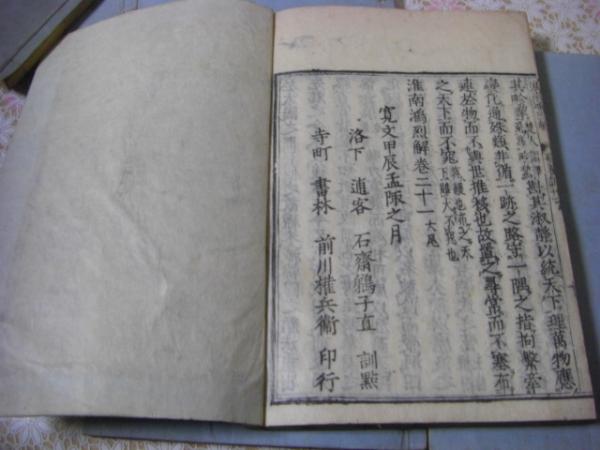 斟其淑靜以統天下理萬物應
變化通殊類非循一跡之路守一隅之指拘繫牽
連於物而不與世推移也故置之尋常而不塞布
之天下而不窕
淮南鴻烈解卷二十一大尾
寛文甲辰孟陬之月
洛下 逋客 石齋鵜子直 訓點
寺町 書林 前川權兵衛 印行